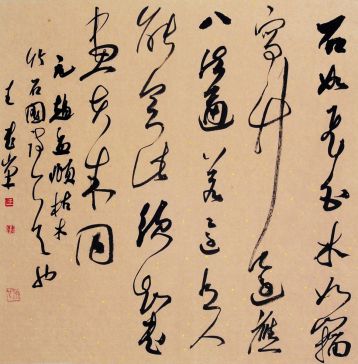 石如飛白木如籀
寫竹還應
八法通若也有人
能會此須知書
畫本來同
元趙孟頫枯木
竹石圖
王